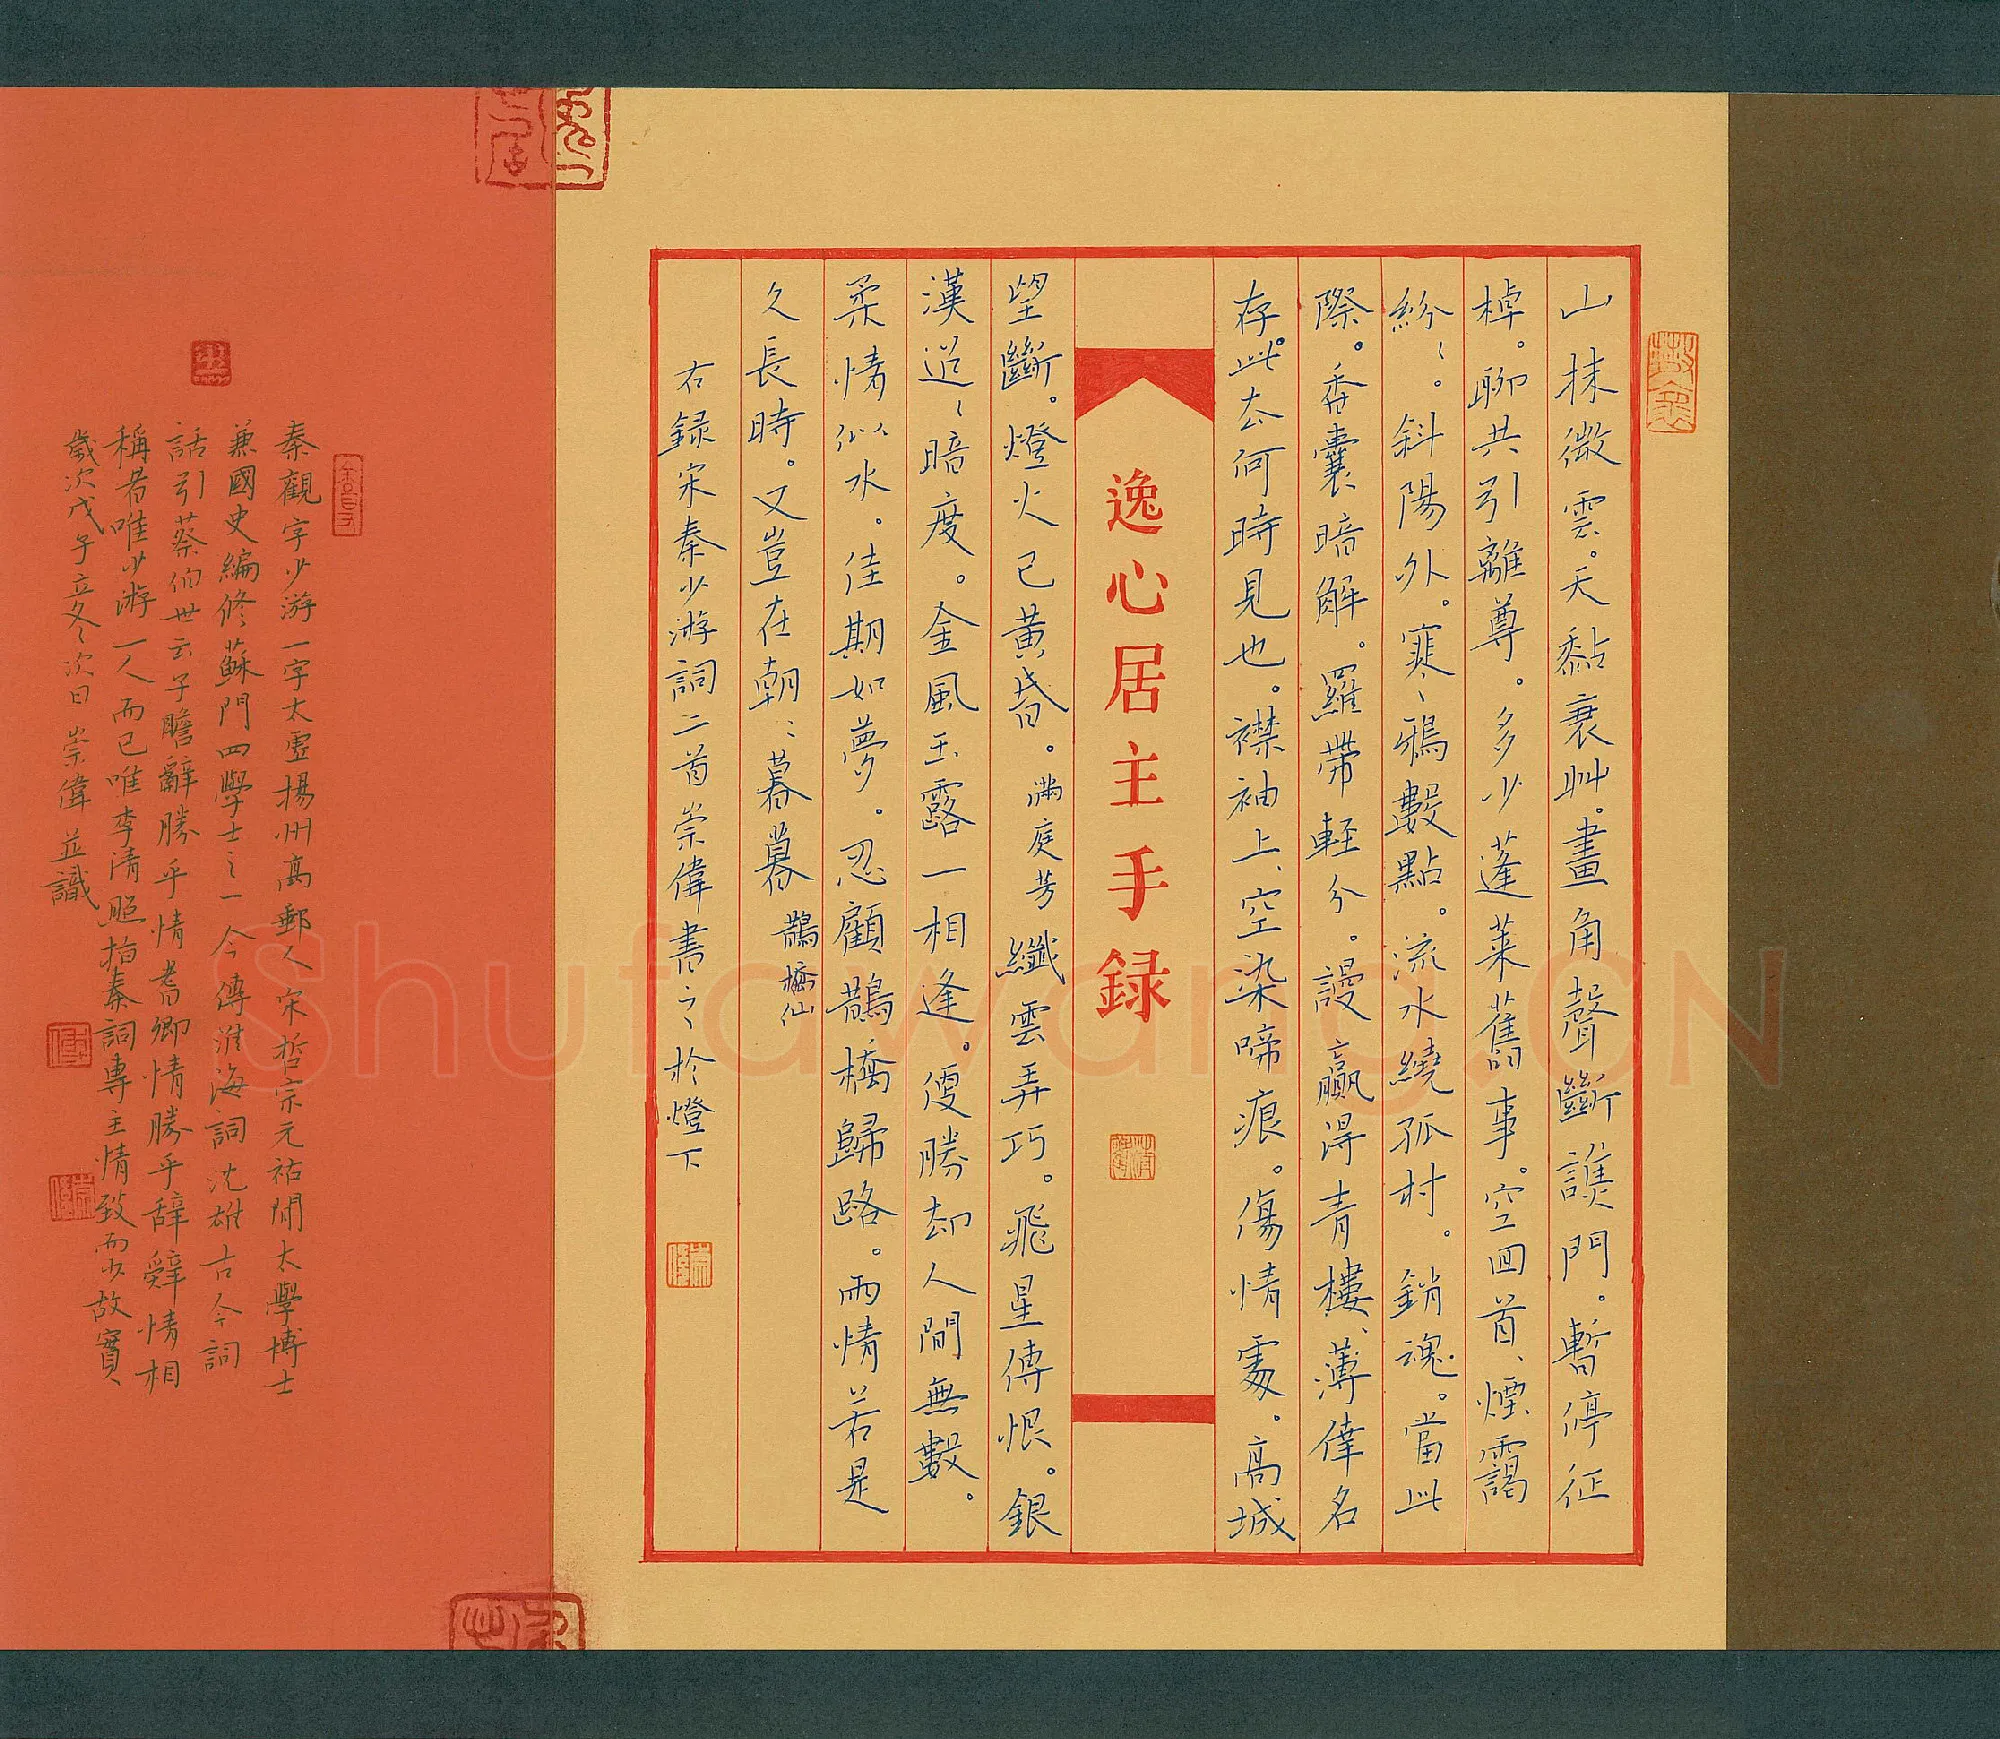 山抹微雲。天黏衰艸。畫角聲斷譙門。暫停征
棹。聊共引離尊。多少蓬萊舊事。空回首、煙靄
紛〻。斜陽外。寒〻鴉數點。流水繞孤村。銷魂。當此
際。香囊暗解。羅帶輕分。謾贏得青樓、薄倖名
存。此去何時見也。襟袖上、空染啼痕。傷情處。高城
逸心居主手録
望斷。燈火已黃昏。滿庭芳 纖雲弄巧。飛星傳恨。銀
漢迢〻暗度。金風玉露一相逢。便勝却人間無數。
柔情似水。佳期如夢。忍顧鵲橋歸路。兩情若是
久長時。又豈在朝〻暮暮 鵲橋仙
右録宋秦少游詞二首崇偉書之於燈下
秦觀字少游一字太虛揚州高郵人宋哲宗元祐間太學博士
兼國史編修蘇門四學士之一今傳淮海詞沈雄古今詞
話引蔡伯世云子瞻辭勝乎情耆卿情勝乎辞辭情相
稱者唯少游一人而已唯李清照指秦詞專主情致而少故實
歲次戊子立冬〻次日 崇偉並識
Shufawang.CN